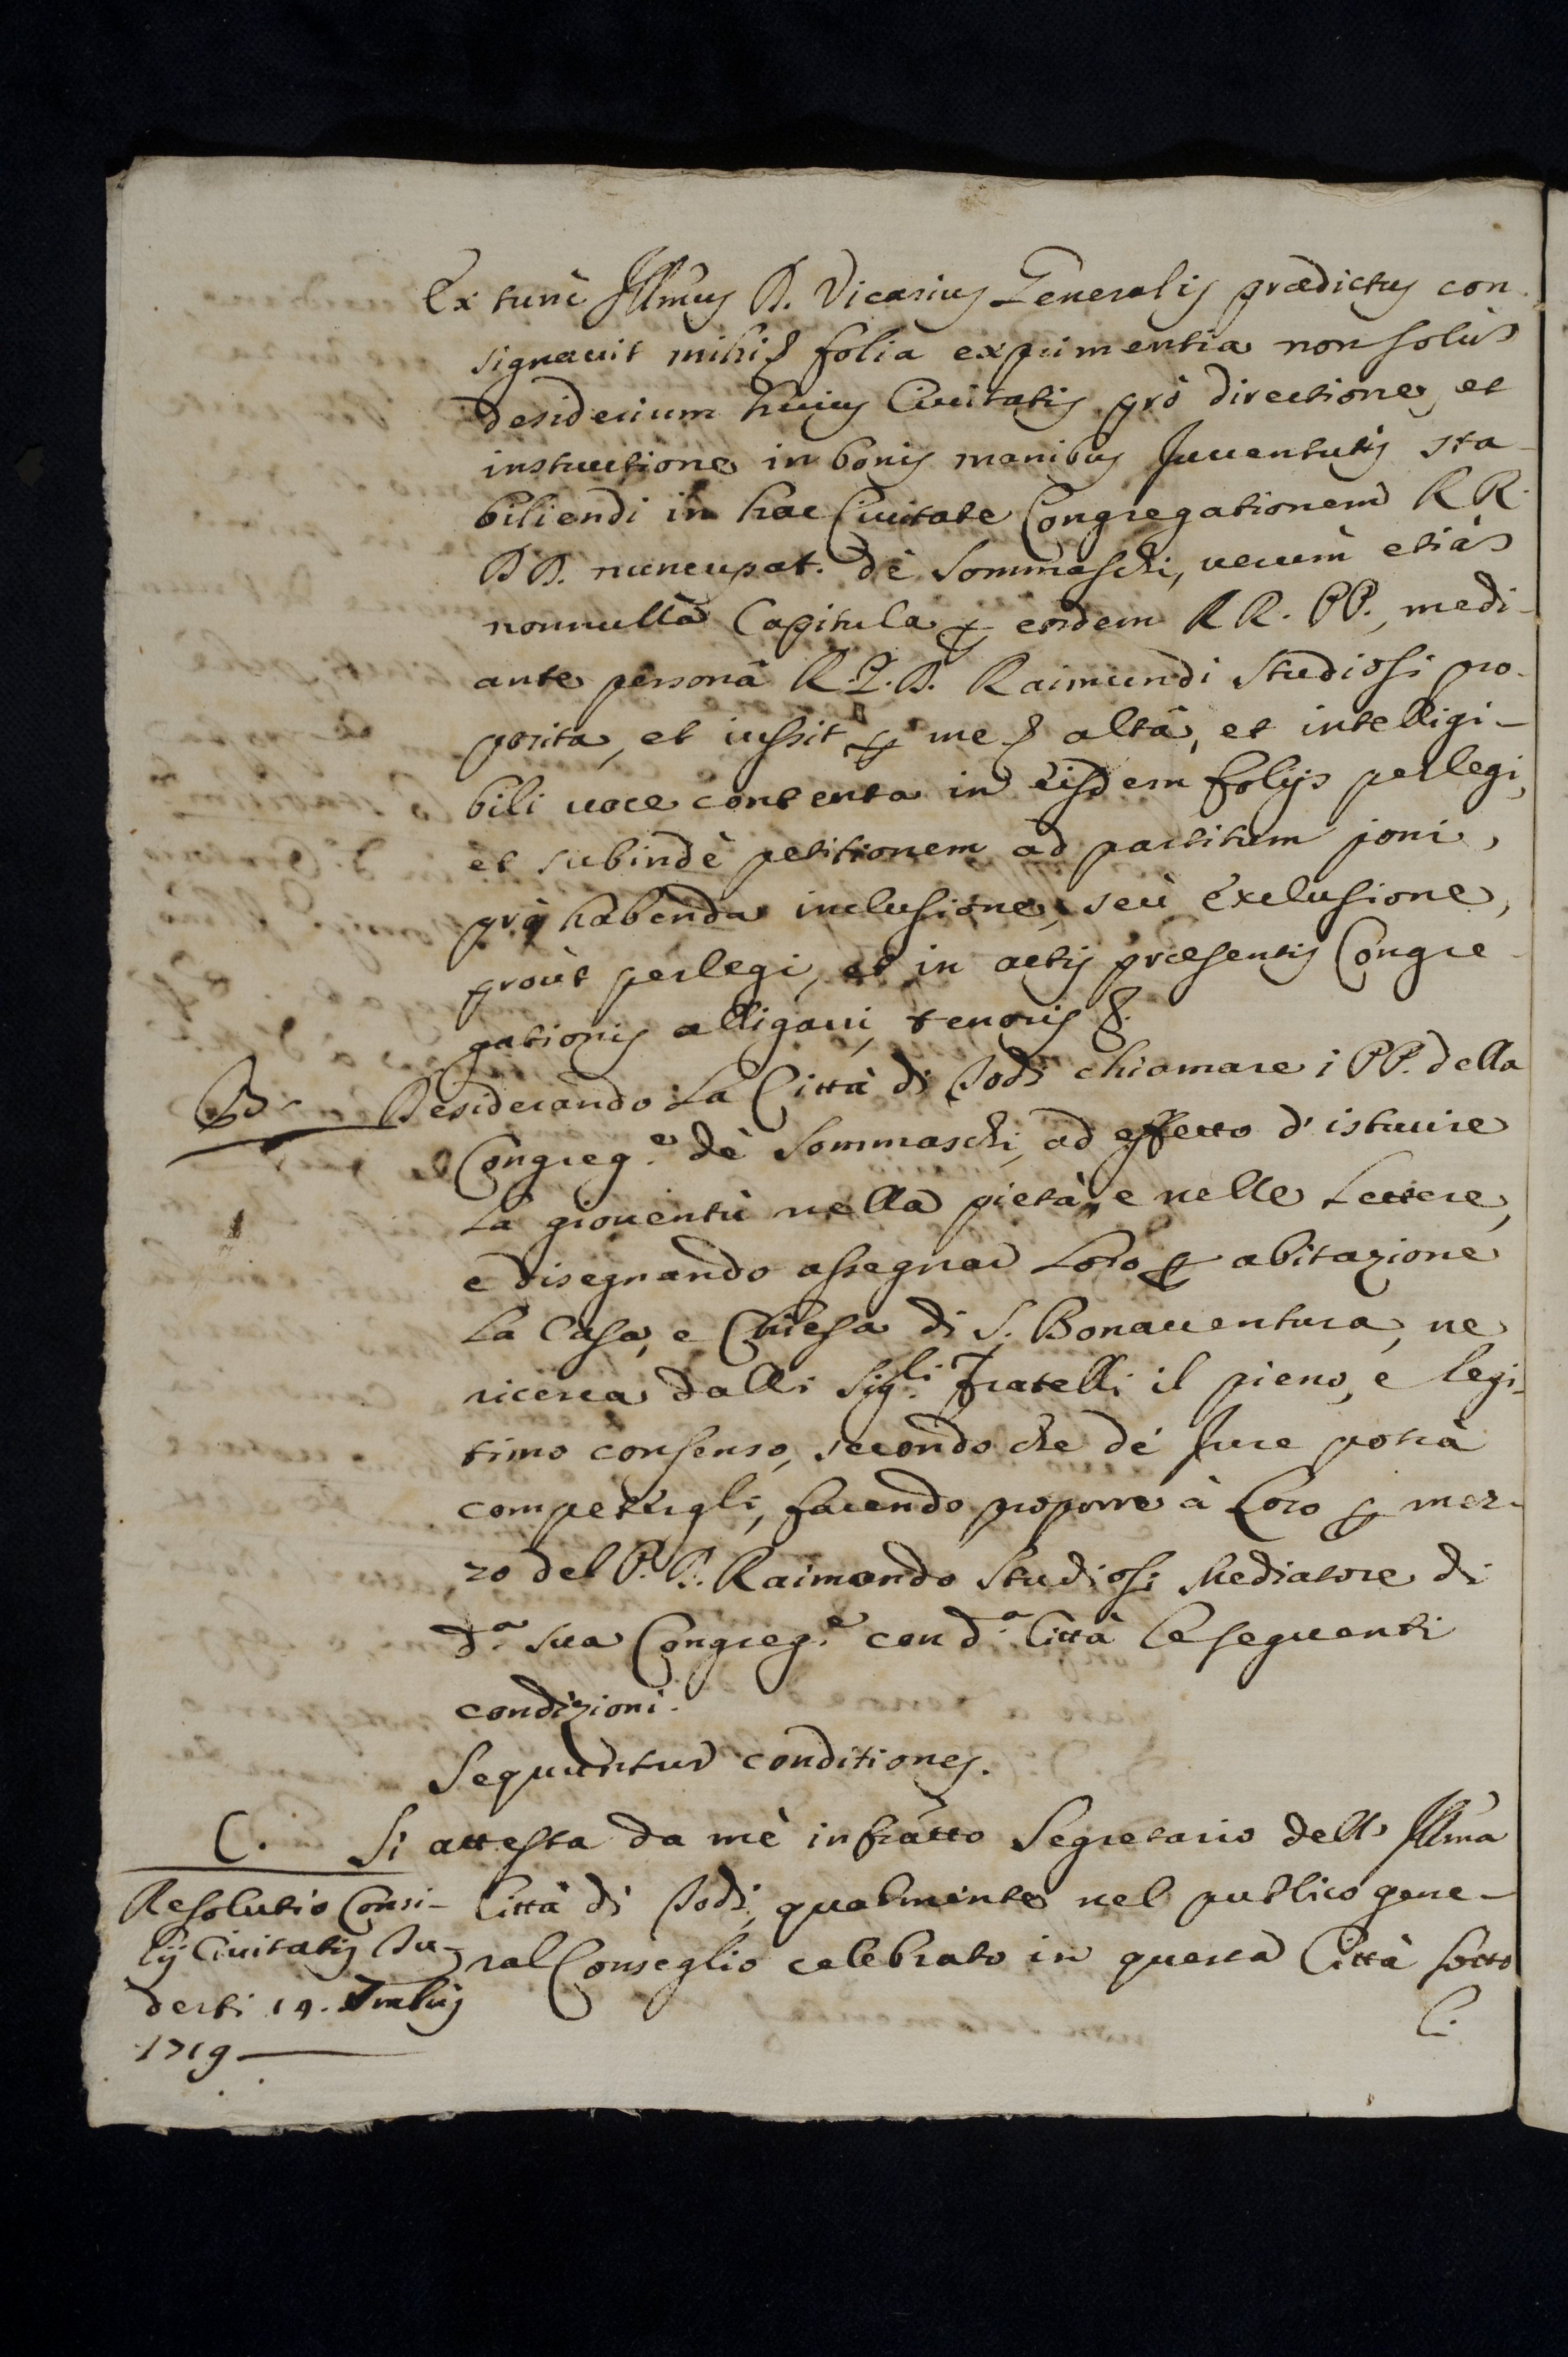 Ex tunc Illmus D. Vicarius Generalis prædictus con-
signauit mihi & folia exprimentia non solũ
desiderium huius Ciuitatis prò directione, et
instructione in bonis moribus Juuentutis sta-
biliendi in hac Ciuitate Congregationem RR.
PP. nuncupat. dè Sommaschi, uerùm etiã
nonnulla Capitula p eosdem RR. PP., medi-
ante personâ R. P. D. Raimundi Studiosi pro-
posita, et iussit p me & altâ, et intelligi-
bili uoce contenta in eisdem folijs perlegi,
et subindè petitionem ad partitum poni,
prò habenda inclusione, seù exclusione,
proùt perlegi, et in actis præsentis Congre-
gationis alligaui, tenoris &.
B. Desiderando La Città di Todi chiamare i PP. della
Congreg.e dè Sommaschi, ad effetto d'istruire
La giouentù nella pietà, e nelle Lettere,
e disegnando assegnar Loro p abitazione
La Casa, e Chiesa di S. Bonauentura, ne
ricerca dalli Sig.li Fratelli il pieno, e legi-
timo consenso, secondo che dè Jure potrà
competergli, facendo proporre à Loro p mez-
zo del P. D. Raimondo Studiosi Mediatore di
d.a sua Congreg.e con d.a Città le seguenti
condizioni.
Sequuntur conditiones.
C. Si attesta da mè infratto Segretario dell' Illma
Resolutio Consi-
lij Ciuitatis Tu-
derti 14.
1719
Città di Todi, qualmente nel publico gene-
ral Conseglio celebrato in questa Città sotto
li